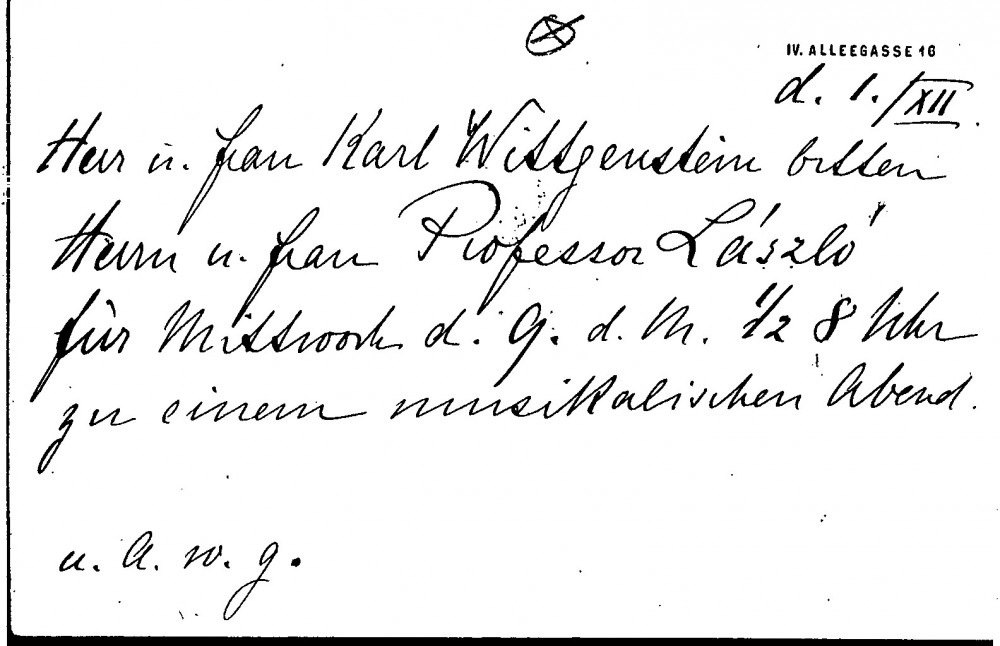 IV. ALLEEGASSE 16
d. 1./XII.
Herr u. Frau Karl Wittgenstein bitten
Herrn u. Frau Professor László
für Mittwoch d. 9. d. M. 1/2 8 Uhr
zu einem musikalischen Abend.
u. A. w. g.